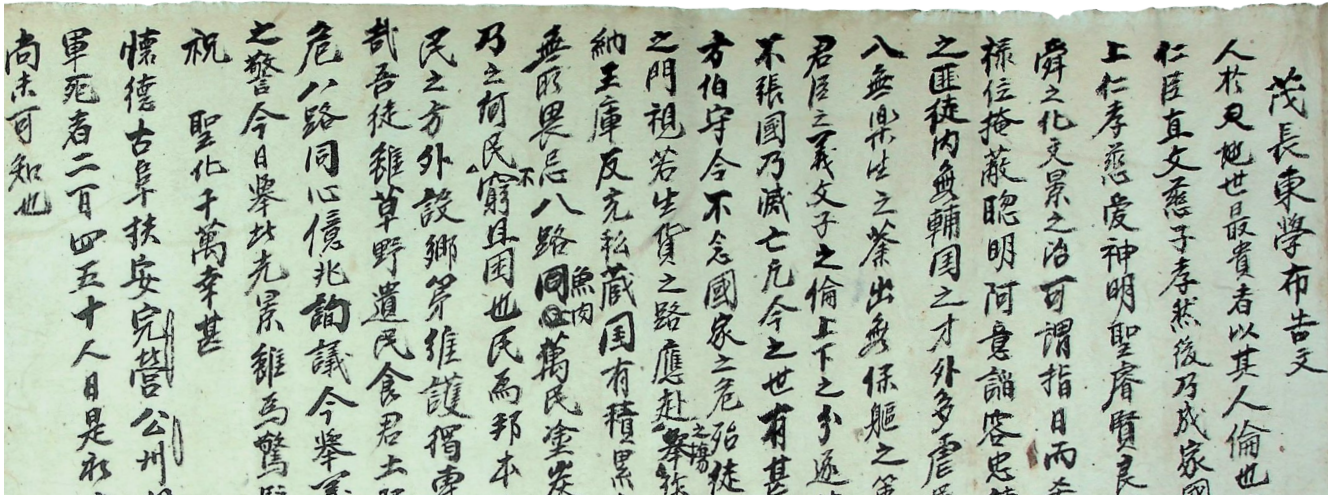 茂長東學布告文
人於天地世最貴者以其人倫也
仁臣直父慈子孝然後乃成家國
上仁孝慈愛神明聖睿賢良
舜之化文景之治可謂指日而希
祿位掩蔽聰明阿意諂容忠
之匪徒內無輔国之才外多虐
入無樂生之業出無保軀之策
君臣之義父子之倫上下之分遂
不張國乃滅亡凡今之世有甚
方伯守令不念國家之危殆徒
之門視若生貨之路應赴之場舉
納王庫反充私藏国有積累
無所畏忌八路同心魚肉萬民塗炭
乃之何民不窮且困也民為邦本
民之方外設鄉第維護獨專
哉吾徒雖草野遺民食君土
危八路同心億兆詢議今舉義
之警今日舉此光景雖馬驚駭
祝 聖化千萬幸甚
懷德古阜扶安完營公州
軍死者二百四五十人日是
尚未可知也